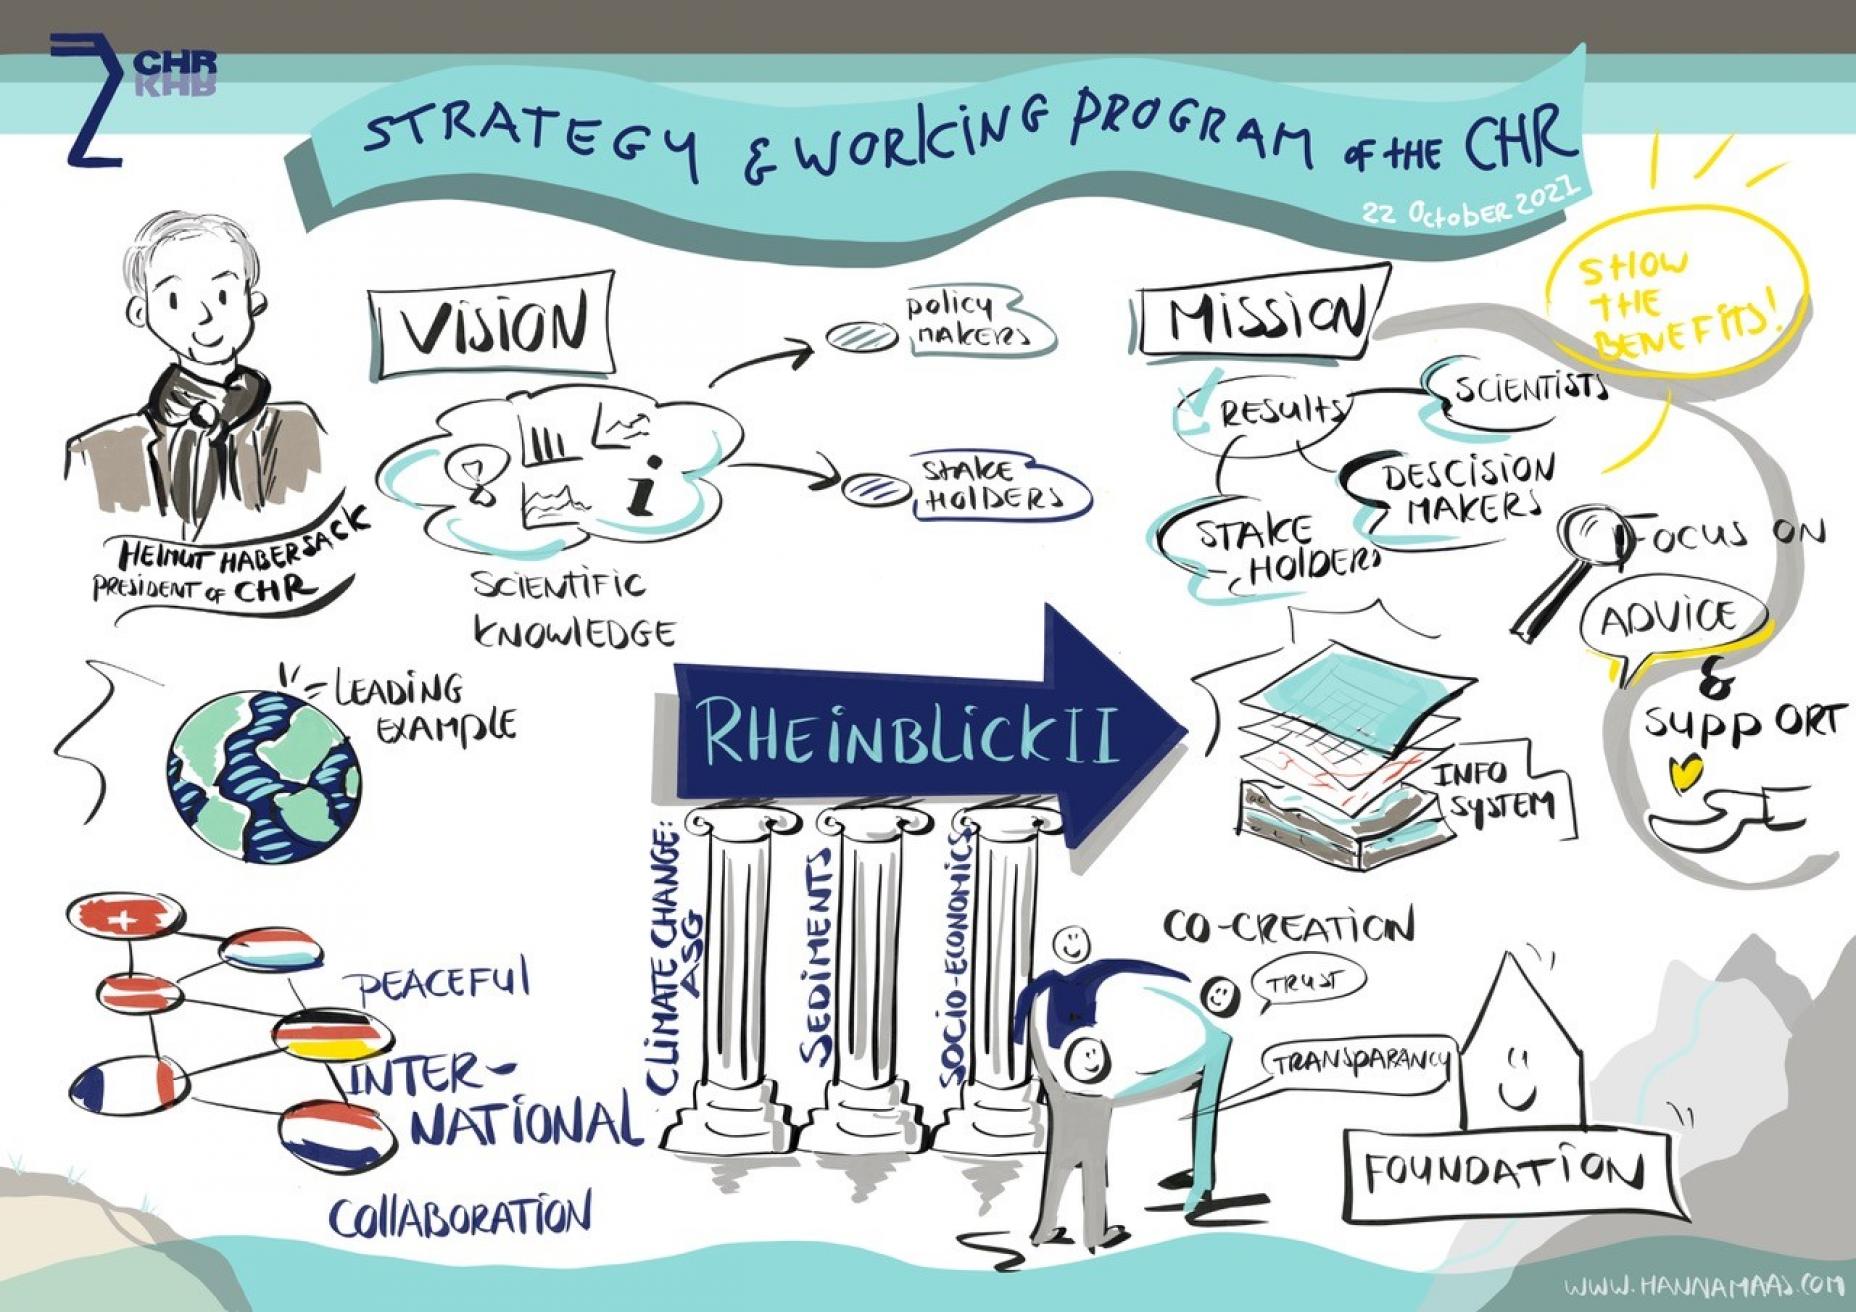 CHR
KHR
STRATEGY & WORKING PROGRAM OF THE CHR
22 OCTOBER 2021
SHOW
THE
BENEFITS!
VISION
POLICY
MAKERS
STAKE
HOLDERS
SCIENTIFIC
KNOWLEDGE
HELMUT HABERSACK
PRESIDENT OF CHR
MISSION
RESULTS
SCIENTISTS
DESCISION
MAKERS
STAKE
HOLDERS
FOCUS ON
ADVICE
&
SUPPORT
LEADING
EXAMPLE
RHEINBLICK II
INFO
SYSTEM
CLIMATE CHANGE:
ASG
SEDIMENTS
SOCIO-ECONOMICS
PEACEFUL
INTER-
NATIONAL
COLLABORATION
CO-CREATION
TRUST
TRANSPARANCY
FOUNDATION
WWW.HANNAMAAS.COM